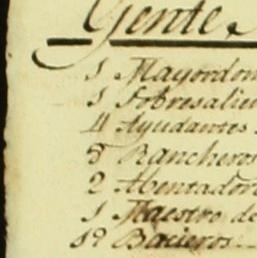 Gente
1 Mayordom
1 Sobresalien
4 Ayudantes
5 Rancheros
2 Aventador
1 Maestro de
19 Bacieros